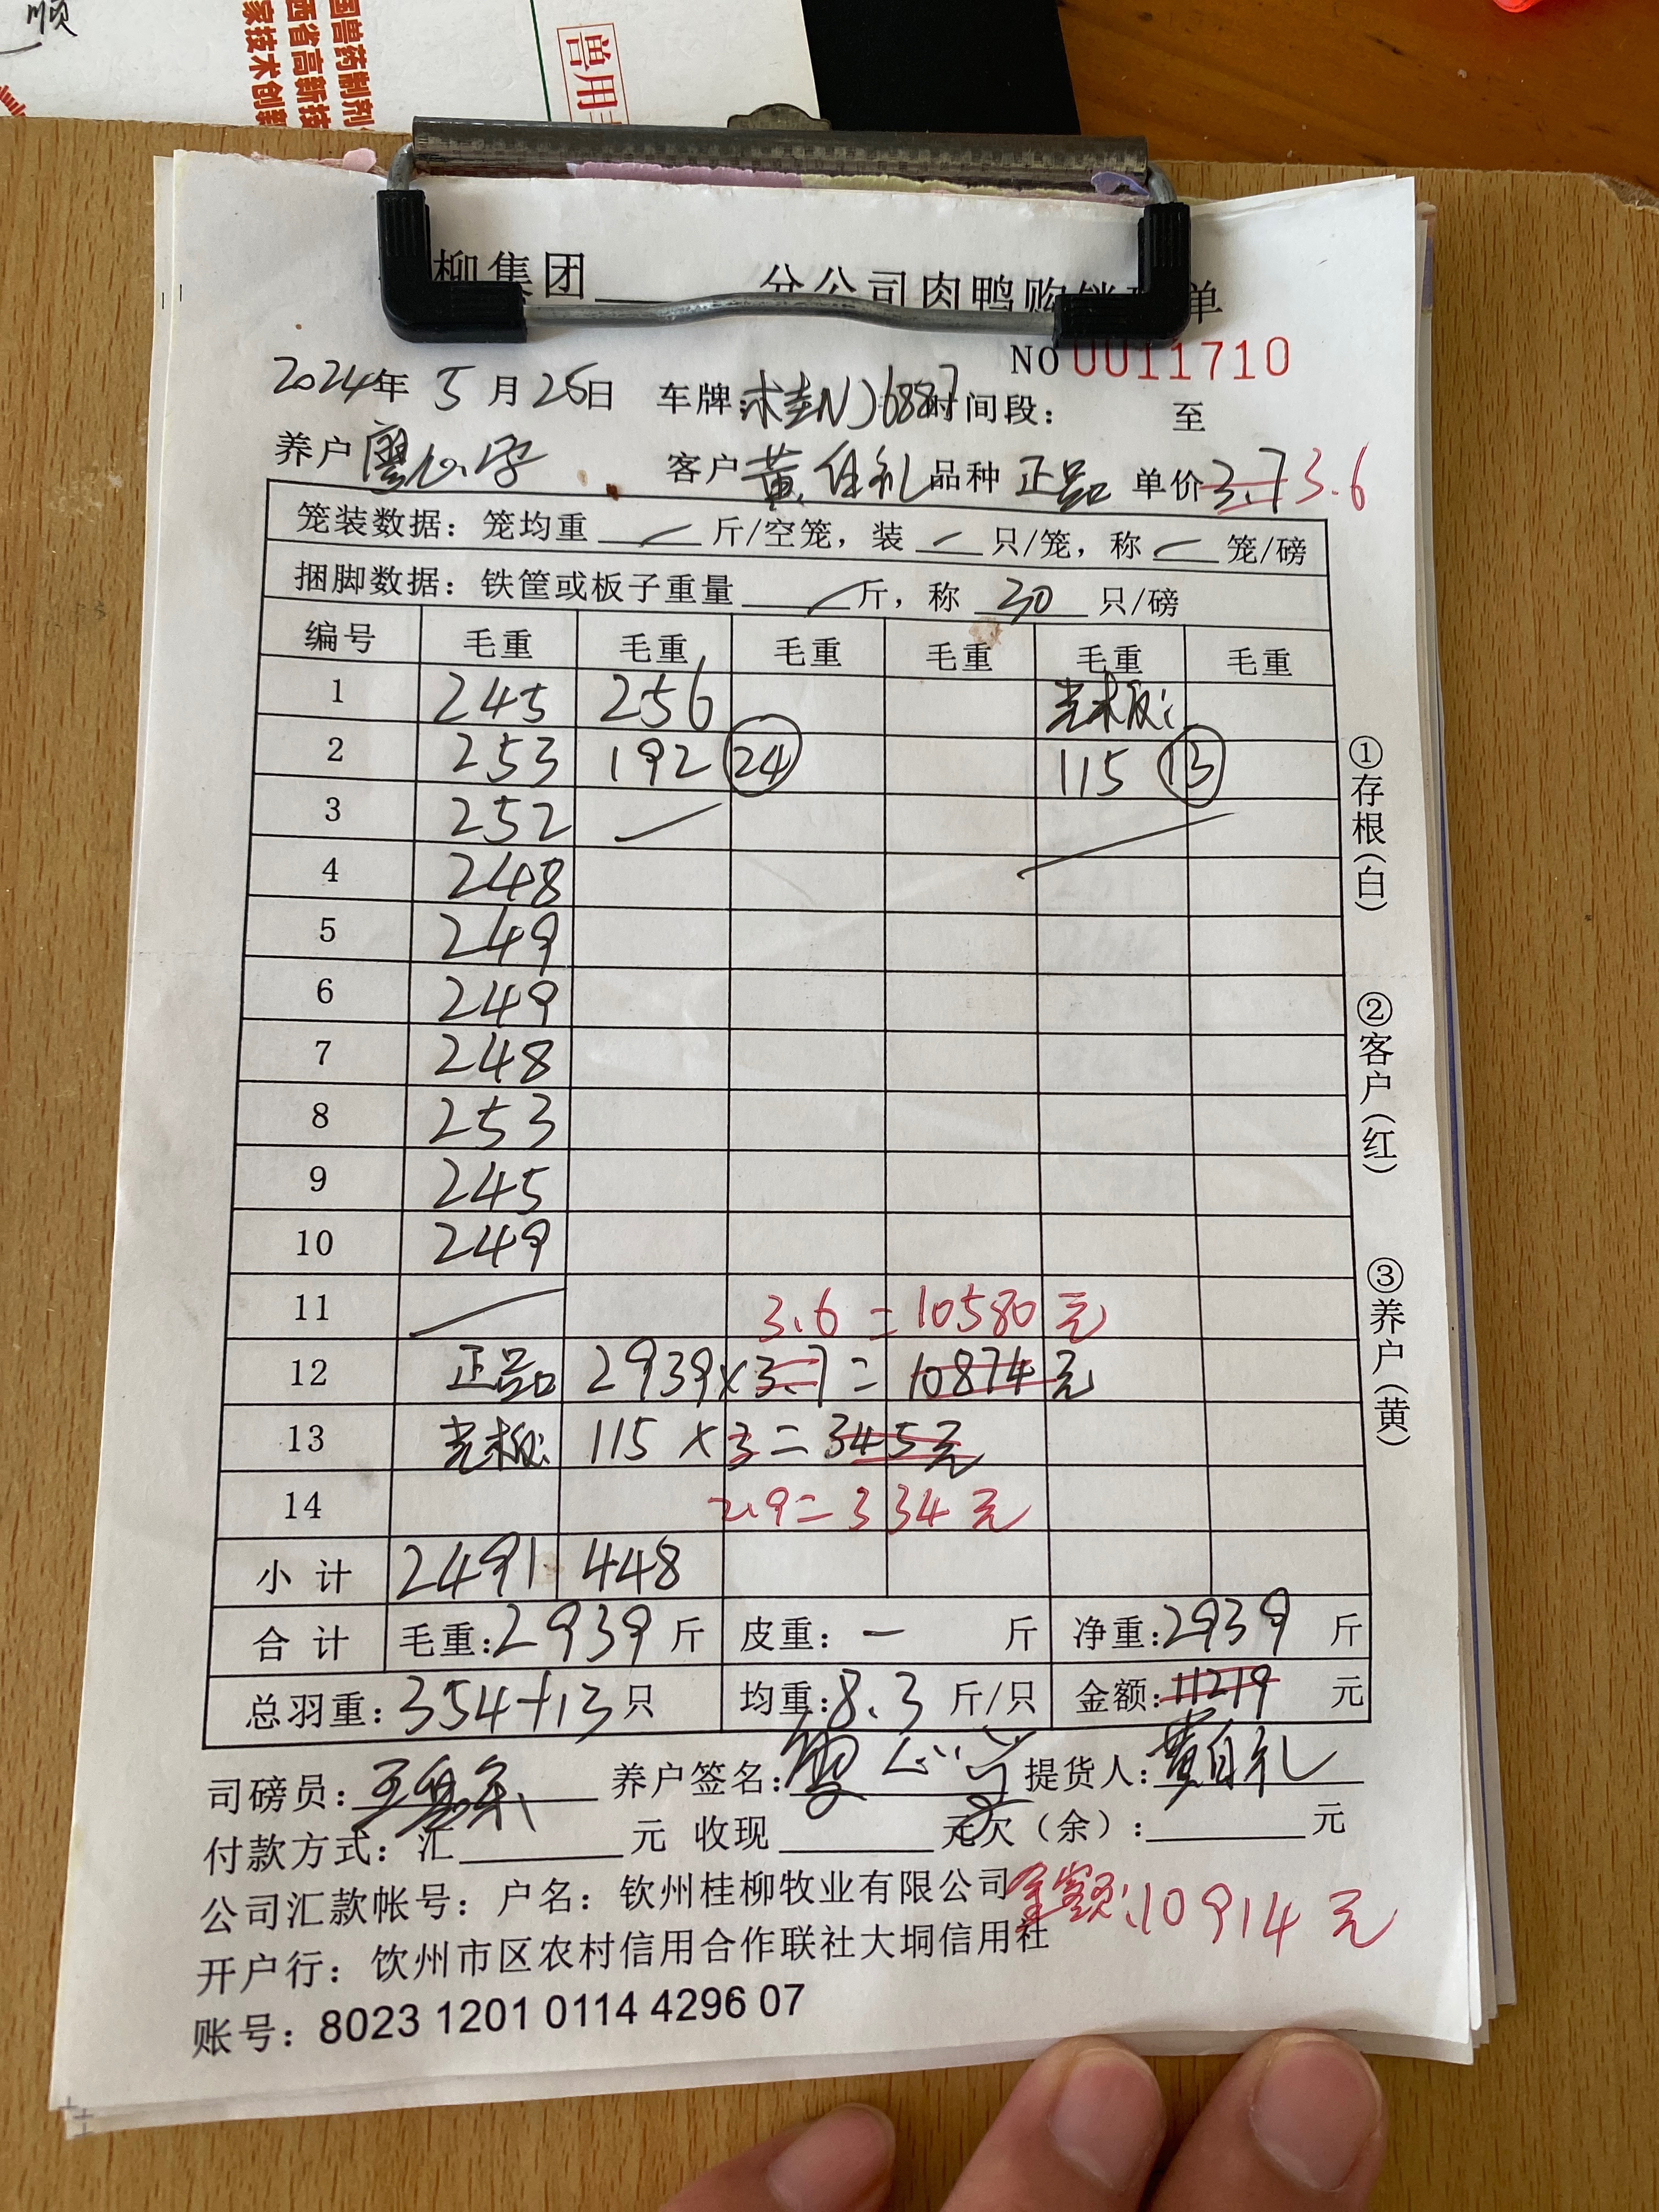 顺
国兽药制剂
西省高新技
家技术创新
兽用
柳集团 分公司肉鸭购销 单
NO 0011710
2024年 5月26日 车牌: 时间段: 至
养户 廖 客户 黄自礼 品种 正品 单价 3.7 3.6
笼装数据: 笼均重 — 斤/空笼, 装 — 只/笼, 称 — 笼/磅
捆脚数据: 铁筐或板子重量 — 斤, 称 30 只/磅
编号 毛重 毛重 毛重 毛重 毛重 毛重
1 245 256
2 253 192 24 115 13
3 252
4 248
5 249
6 249
7 248
8 253
9 245
10 249
11 3.6 = 10580 元
12 正品 2939×3.7 = 10874 元
13 115 ×3 = 345元
14 2.9= 334 元
小计 2491 448
合计 毛重:2939 斤 皮重: — 斤 净重:2939 斤
总羽重: 354+13只 均重:8.3 斤/只 金额:11219 元
司磅员: 养户签名: 提货人: 黄自礼
付款方式: 汇 元 收现 元欠(余): 元
公司汇款帐号: 户名: 钦州桂柳牧业有限公司
金额:10914 元
开户行: 钦州市区农村信用合作联社大垌信用社
账号: 8023 1201 0114 4296 07
①存根(白)
②客户(红)
③养户(黄)